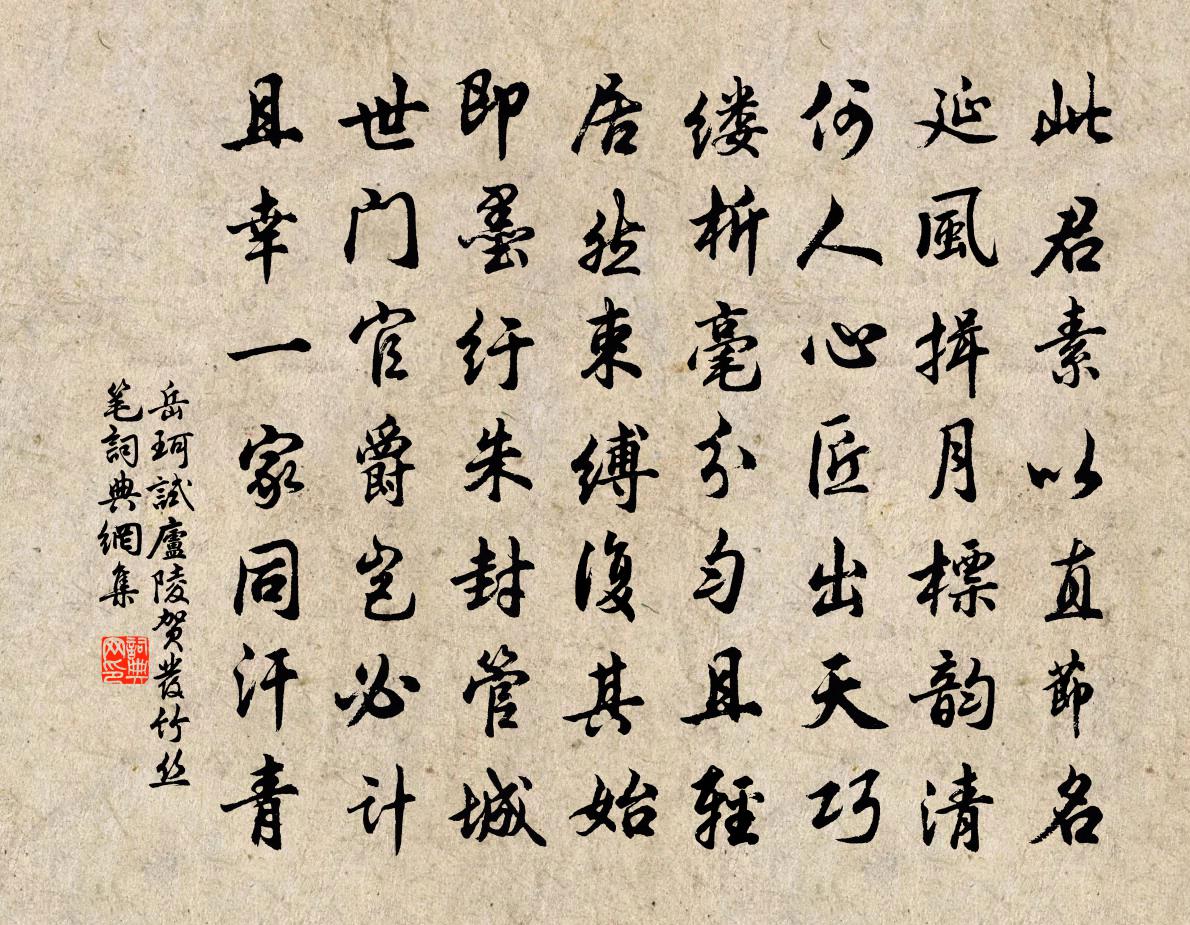 此君素以直節名
延風揖月標韵清
何人心匠出天巧
缕析毫分匀且輕
居然束缚復其始
即墨紆朱封管城
世门官爵豈必计
且幸一家同汗青
岳珂試廬陵贺發竹丝
笔詞典網集
詞典
网印